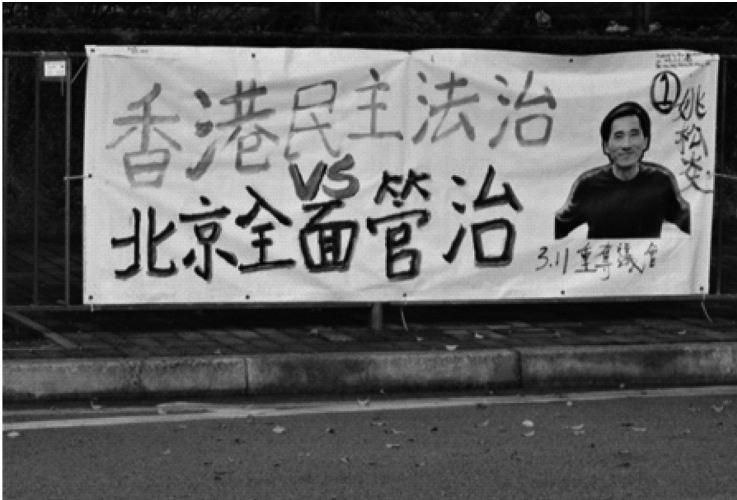 香港民主法治
VS
北京全面管治
①
姚松炎
3.11重奪議會